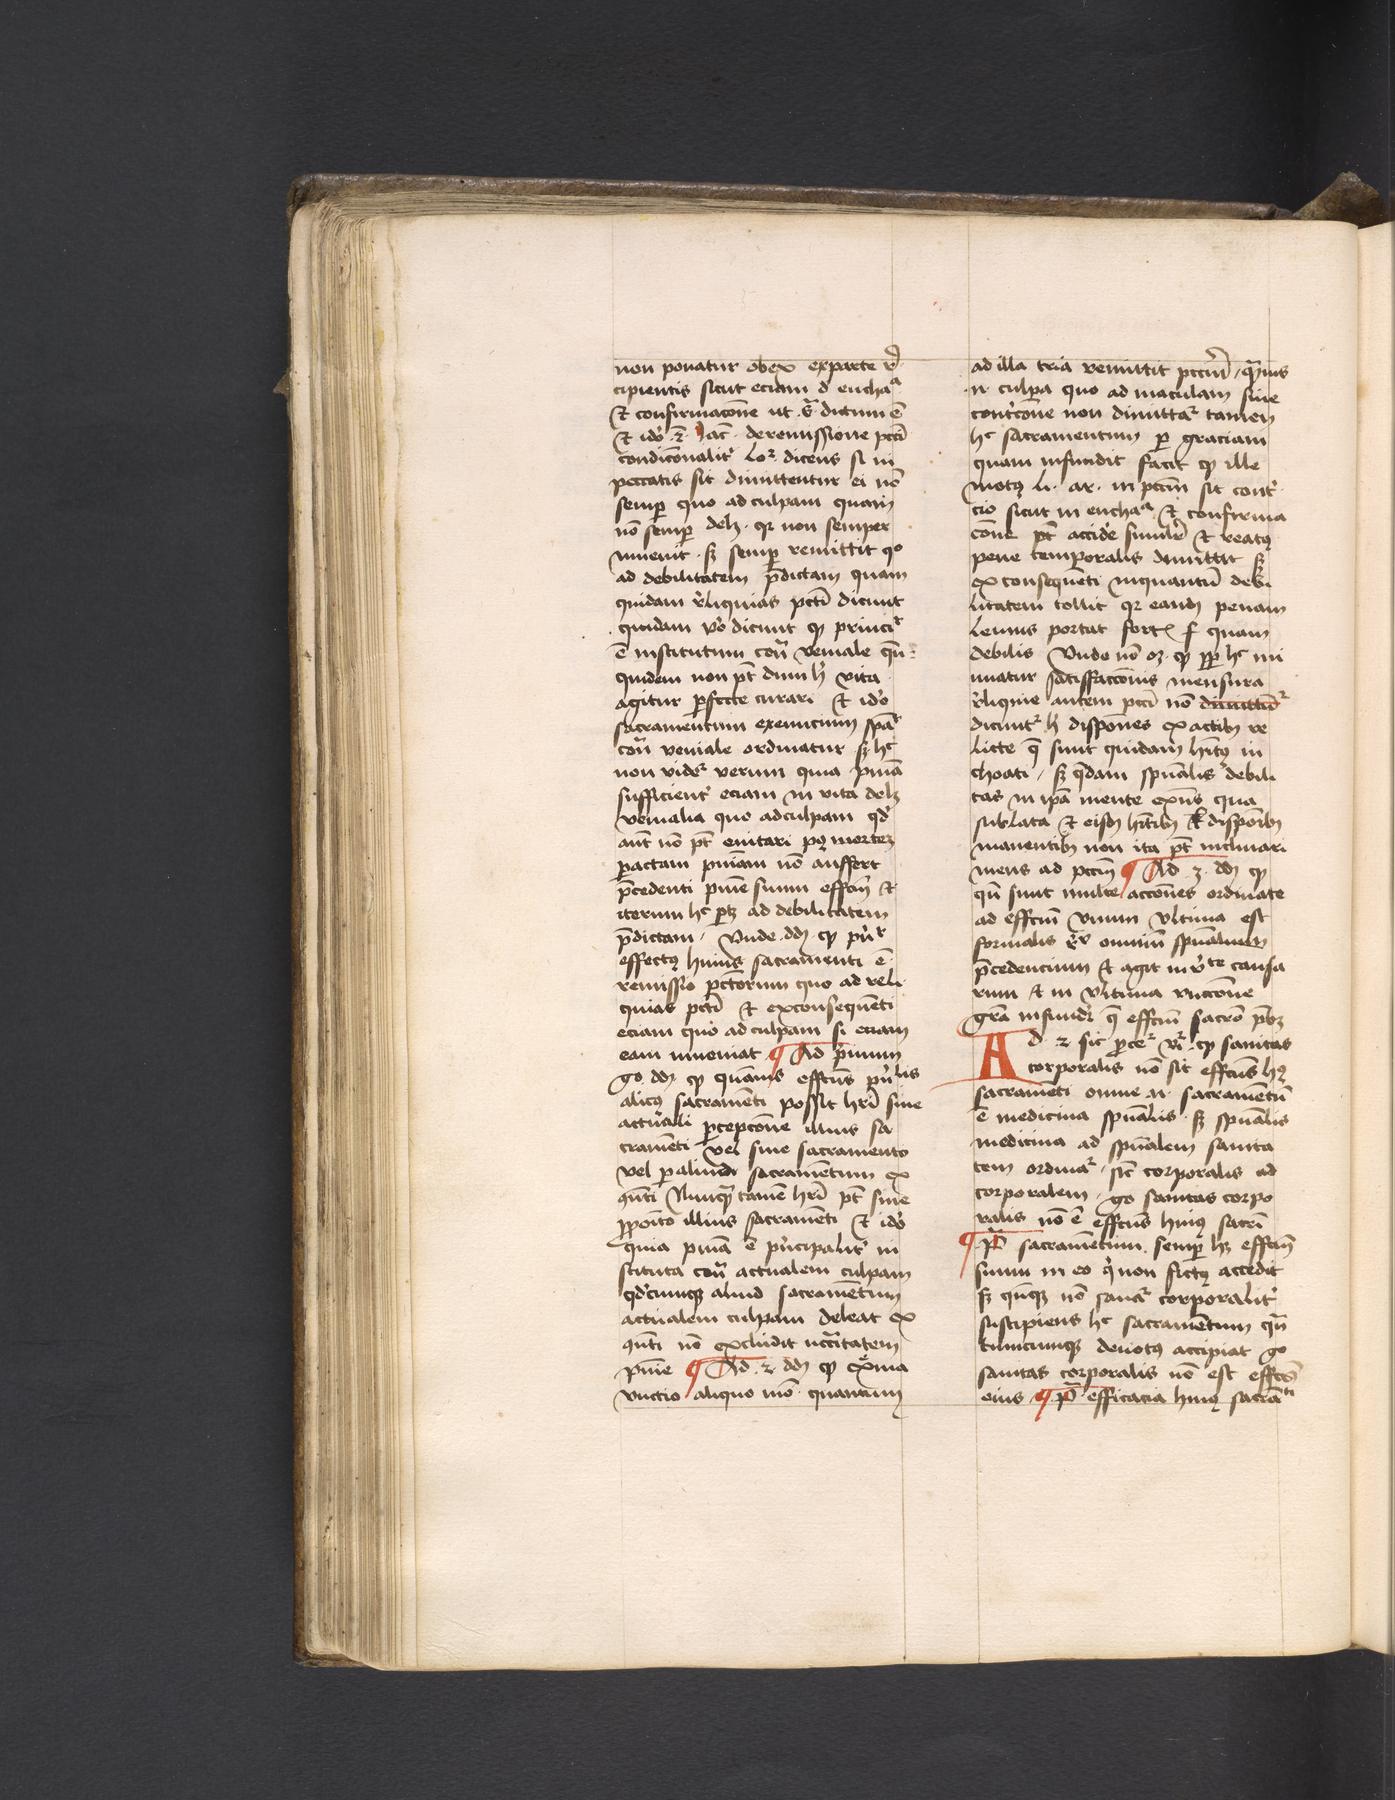 non ponatur obex exparte re
cipientis sicut eciam d euchaᵃ
et confirmacōne ut .sᵃ dictum ē
et idō .2. Jac. deremissione pcc̄i
condicōnalit᷑ loꝛ dicens si in
peccatis sit dimittentur ei nō
semꝑ quo ad culpam quam
nō semꝑ delꝫ . qꝛ non semper
inuenit . sꝫ semꝑ remittit qo
ad debilitatem p̄dictam quam
quidam reliquias pcc̄i dicunt
quidam vo dicunt qꝫ
ē institutum cont̄ veniale qn̄
quidem non pt̄ dum hec vita
agitur ꝑfecte curari et idō
sacramentum exeuncium
cont̄ veniale ordinatur sꝫ hᶜ
non videꝛ verum quia pnīa
sufficient᷑ eciam in vita delꝫ
venialia quo adculpam qd᷑
aūt nō pt̄ euitari pꝰ mortem
ꝑactam pnīam nō auffert
p̄cedenti pnīe suum effc̄m et
iterum hᶜ ꝑtꝫ ad debilitatem
p̄dictam . Unde .dd. qꝫ
effectꝰ huius sacramenti ē
remissio pcc̄torum quo ad reli
quias pcc̄i et exconsequēti
eciam quo ad culpam si eciam
eam inueniat ¶ Ad primum
go .dd. qꝫ quāuis effcūs
alicꝰ sacramēti possit hr̄i sine
actuali ꝑcepcōne illius sa
cramēti vel sine sacramento
vel ꝑ aliud sacramentum ex
 Nunqᵃ tamē hr̄i pt̄ sine
ꝓposito illius sacramēti et idō
quia pnīa ē p᷑ncipalit᷑ in
stituta cont̄ actualem culpam
qd᷑cunqꝫ aliud sacramentum
actualem culpam deleat ex
 nō excludit nec̄citatem
pnīe ¶ Ad .2. dd. qꝫ exᵃma
vnctio aliquo mō quantum
ad illa tria remittit pcc̄m , quāuis
n culpa quo ad maculam sine
contricōne non dimittatꝛ tamen
hᶜ sacramentum ꝑ graciam
quam infundit facit qꝫ ille
motꝰ li. ar. in pcc̄m sit cont᷑
cio sicut in euchaᵃ et confirma
cōne pt̄ accide᷑ simile᷑ et reatꝰ
pene temporalis dimittit sꝫ
ex consequēti inquantū debi
litatem tollit qꝛ eandꝫ penam
leuius portat fortis quam
debilis Unde nō oꝫ qꝫ ꝓp̄ hᶜ mi
nuatur satisfaccōnis mensura
reliquie autem pcc̄i nō dimittūtꝛ
dicuntꝛ hic dispōnes ex actibꝫ re
licte q̄ sunt quidam hītꝰ in
choati , sꝫ qdam spūalis debili
tas in ipā mente exn̄s qua
sublata et eisdꝫ hītibꝫ et dispōibꝫ
manentibꝫ non ita pt̄ inclinari
mens ad pcc̄m ¶ Ad .3. dd. qꝫ
qn̄ sunt multe accōnes ordinate
ad effc̄m vnum vltima est
formalis omniū spūalium
p̄cedencium et agit in v᷑te causa
rum et in vltima vnccōne
grā infundi᷑ q̄ effc̄m sacrō p̄bꝫ
Ad .2. sic ꝓcedꝛ vꝛ qꝫ sanitas
corporalis nō sit effcūs hꝰ
sacramēti omne .n. sacramentū
ē medicina spūalis . sꝫ spūalis
medicina ad spūalem sanita
tem ordinaꝛ , sic̄ corporalis ad
corporalem , go sanitas corpo
ralis nō ē effcūs huiꝰ sacrī
¶ P̄ sacramentum semꝑ hꝫ effc̄m
suum in eo q᷑ non fictꝰ accedit
sꝫ qn̄qꝫ nō sanaꝛ corporalit᷑
suscipiens hᶜ sacramentum qn̄
tumcunqꝫ deuotꝰ accipiat go
sanitas corporalis nō est effcūs
eius ¶ P̄ efficacia huiꝰ sacrāᵗⁱ